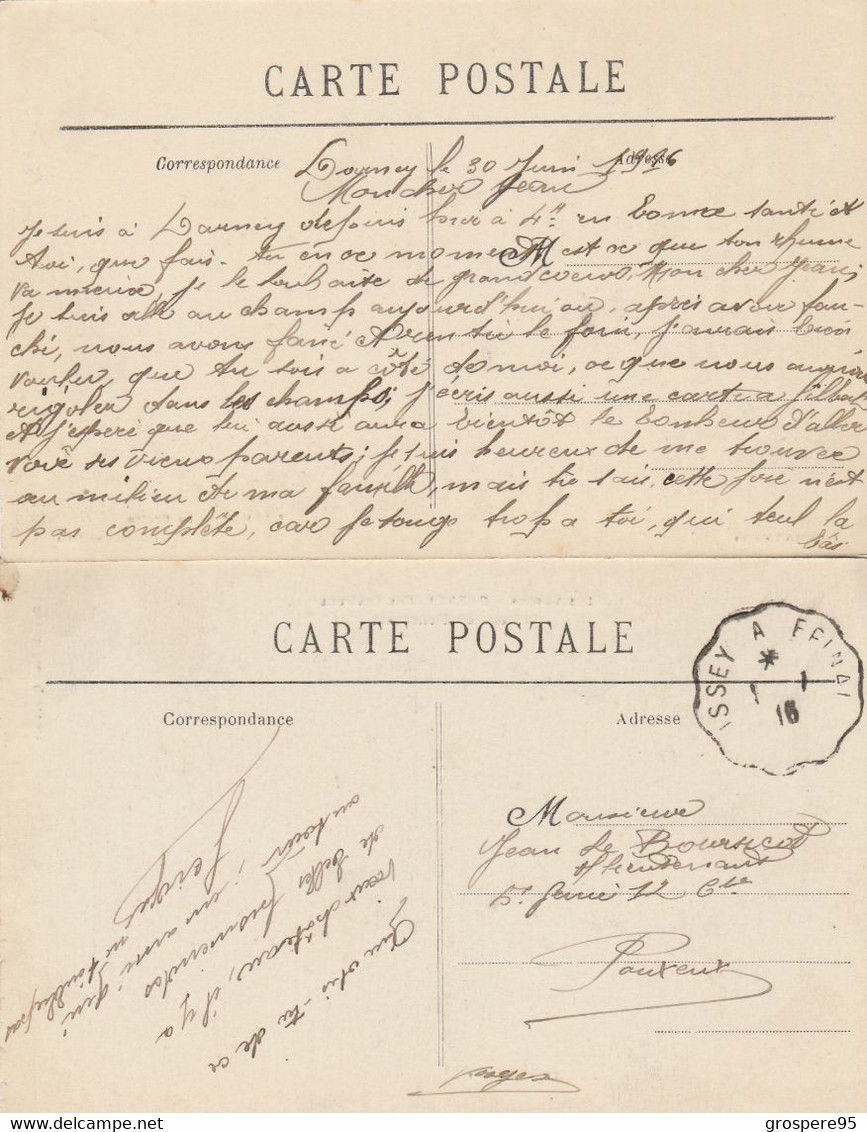 CARTE POSTALE
Correspondance
Adresse
Darney le 30 Juin 1916
Mon cher Jean
Je suis à Darney depuis hier à 4h en bonne santé et
toi, que fais-tu en ce moment est ce que ton rhume
va mieux, je le souhaite de grand coeur. Mon cher Jean,
je suis allé au champ aujourd'hui, après avoir fau-
ché, nous avons fané et rentré le foin, j'aurais bien
voulu que tu sois a côté de moi, ce que nous aurions
rigoler dans les champs; j'écris aussi une carte a Gilbert
et j'espère que lui aussi aura bientôt le bonheur d'aller
voir ses vieux parents; je suis heureux de me trouver
au milieu de ma famille, mais tu sais, cette joie n'est
pas complête, car je songe trop a toi, qui seul la
bàs
CARTE POSTALE
ISSEY A
1 1
16
Correspondance
Adresse
Monsieur
Jean de Boursicot
5e Génie 12 Cie
Pouxeux
Vosges
Que dis-tu de ce
vieux château, il y a
de belles promenades
autour; un ami qui
ne t'oublie pas